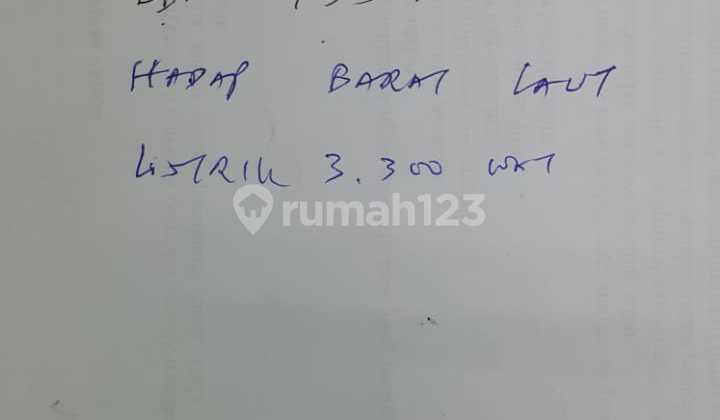 HADAP BARAT LAUT
LISTRIK 3.300 WAT
rumah123